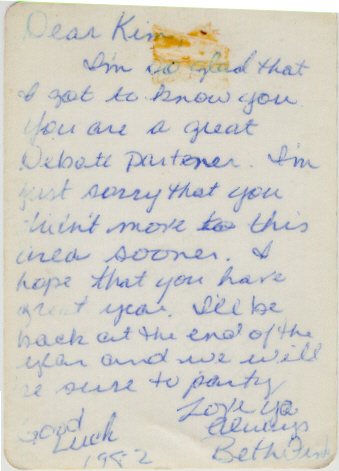 Dear Kim
I'm so glad that
I got to know you.
You are a great
Debate Partener. I'm
just sorry that you
didn't move to this
area sooner. I
hope that you have
great year. I'll be
back at the end of the
year and we will
be sure to party
Love ya
Always
Good
Luck
Beth
1982